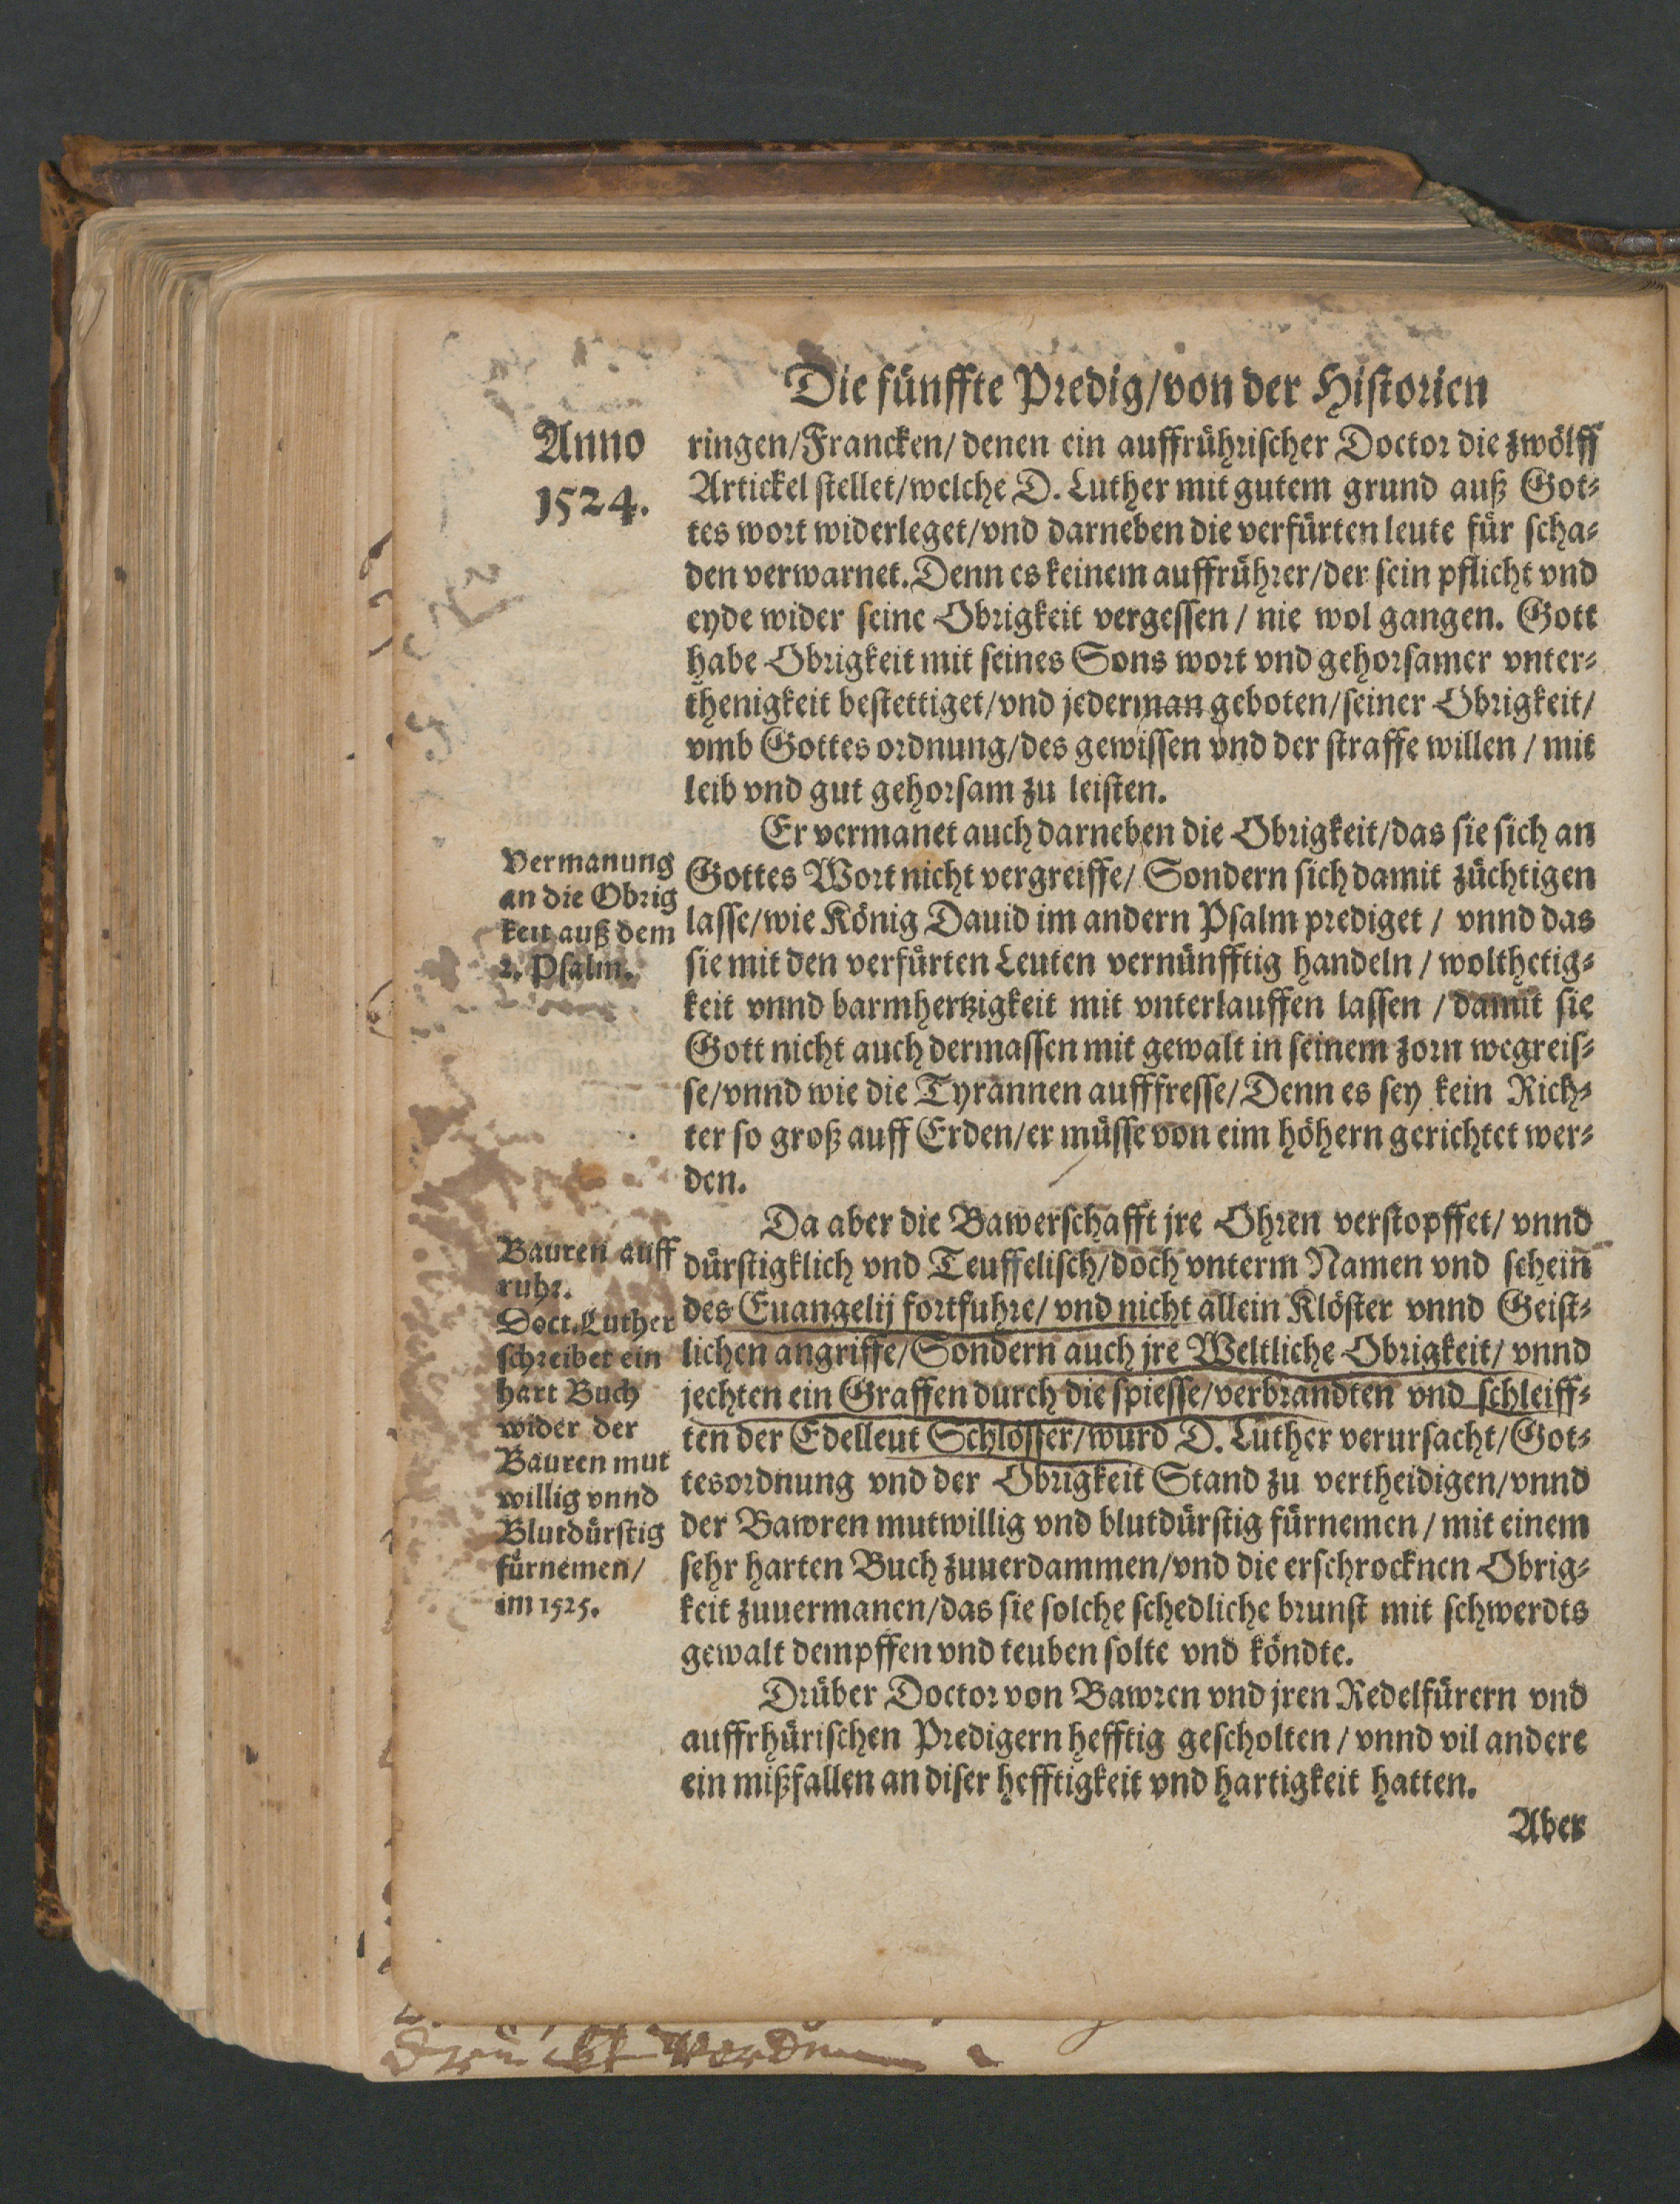 Die fünffte Predig/von der Historien
Anno
1524.
ringen/Francken/ denen ein auffrührischer Doctor die zwölff
Artickel stellet/welche D. Luther mit gutem grund auß Got⸗
tes wort widerleget/vnd darneben die verfürten leute für scha⸗
den verwarnet. Denn es keinem auffrührer/der sein pflicht vnd
eyde wider seine Obrigkeit vergessen / nie wol gangen. Gott
habe Obrigkeit mit seines Sons wort vnd gehorsamer vnter⸗
thenigkeit bestettiget/vnd jederman geboten/seiner Obrigkeit/
vmb Gottes ordnung/des gewissen vnd der straffe willen / mit
leib vnd gut gehorsam zu leisten.
Er vermanet auch darneben die Obrigkeit/das sie sich an
Gottes Wort nicht vergreiffe/ Sondern sich damit züchtigen
lasse/wie König Dauid im andern Psalm prediget / vnnd das
sie mit den verfürten Leuten vernünfftig handeln / wolthetig⸗
keit vnnd barmhertzigkeit mit vnterlauffen lassen / damit sie
Gott nicht auch dermassen mit gewalt in seinem zorn wegreis⸗
se/vnnd wie die Tyrannen aufffresse/Denn es sey kein Rich⸗
ter so groß auff Erden/er müsse von eim höhern gerichtet wer⸗
den.
Vermanung
an die Obrig
keit auß dem
2. Psalm.
Da aber die Bawerschafft jre Ohren verstopffet/ vnnd
dürstigklich vnd Teuffelisch/doch vnterm Namen vnd schein
des Euangelij fortfuhre/ vnd nicht allein Klöster vnnd Geist⸗
lichen angriffe/Sondern auch jre Weltliche Obrigkeit/ vnnd
jechten ein Graffen durch die spiesse/verbrandten vnd schleiff⸗
ten der Edelleut Schlösser/wurd D. Luther verursacht/Got⸗
tesordnung vnd der Obrigkeit Stand zu vertheidigen/vnnd
der Bawren mutwillig vnd blutdürstig fürnemen / mit einem
sehr harten Buch zuuerdammen/vnd die erschrocknen Obrig⸗
keit zuuermanen/das sie solche schedliche brunst mit schwerdts
gewalt dempffen vnd teuben solte vnd köndte.
Bauren auff
ruhr.
Doct. Luther
schreibet ein
hart Buch
wider der
Bauren mut
willig vnnd
Blutdürstig
fürnemen/
im 1525.
Drüber Doctor von Bawren vnd jren Redelfürern vnd
auffrhürischen Predigern hefftig gescholten / vnnd vil andere
ein mißfallen an diser hefftigkeit vnd hartigkeit hatten.
Aber